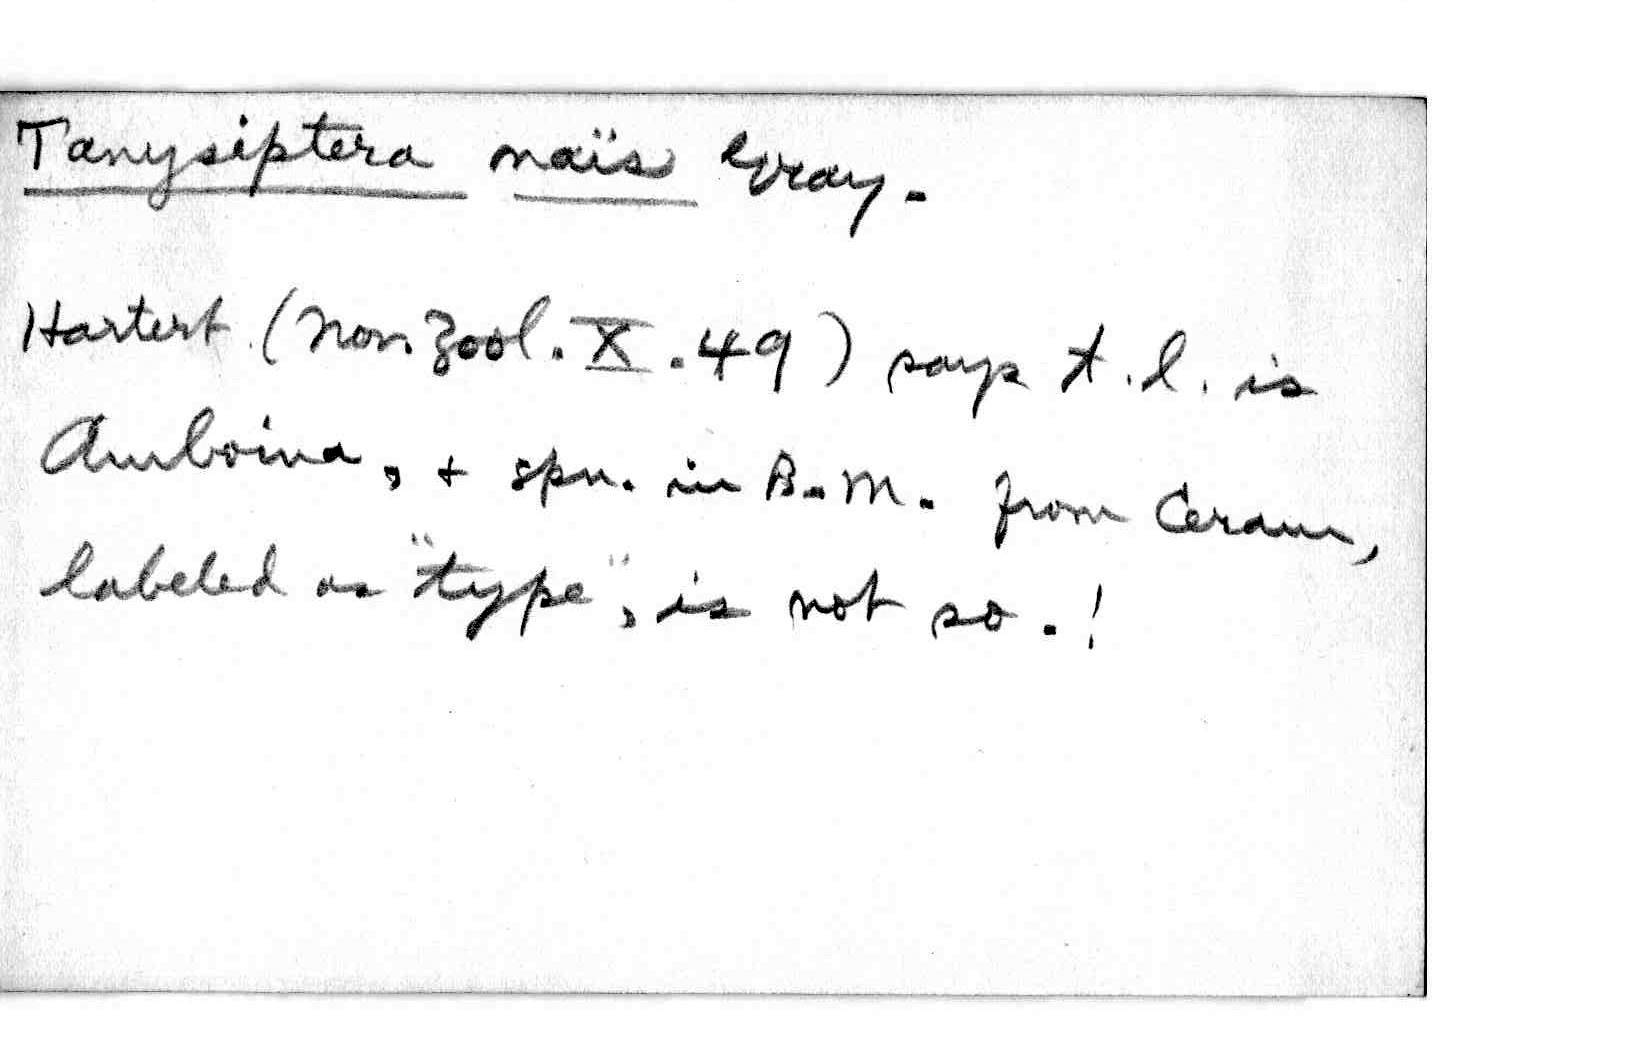 Tanysiptera naïs Gray.
Hartert (Nov. Zool. X. 49) says t.l. is
Amboina, + spn. in B.M. from Ceram,
labeled as "type", is not so.!